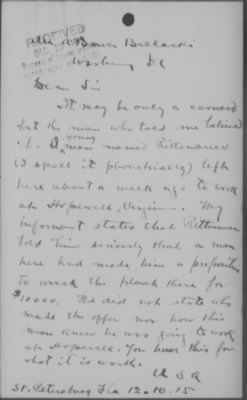 RECEIVED
A Bruce Bielaski
Washing DC
Dear Sir
It may be only a canard
but the man who told me believed
it. A young man named Rittenauer
(I spell it phonetically) left
here about a week ago to work
at Hopewell, Virginia. My
informant states that Rittenauer
told him seriously that a man
here had made him a proposition
to wreck the plant there for
$10000. He did not state who
made the offer nor how this
man knew he was going to work
at Hopewell. You have this for
what it is worth.
U S A
St. Petersburg Fla 12.10.15